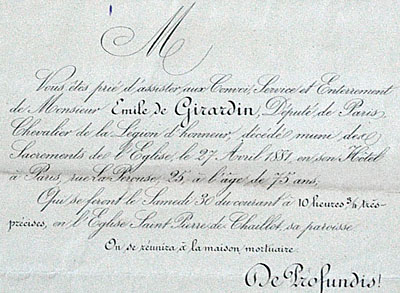 M
Vous êtes prié d'assister aux Convoi, Service et Enterrement
de Monsieur Emile de Girardin, Député de Paris
Chevalier de la Légion d'honneur, décédé muni des
Sacrements de l'Eglise, le 27 Avril 1881, en son Hôtel
à Paris, rue La Pérouse 25, à l'âge de 75 ans.
Qui se feront le Samedi 30 du courant à 10 heures 3/4 très-
précises, en l'Eglise Saint Pierre de Chaillot, sa paroisse.
On se réunira à la maison mortuaire.
De Profundis!